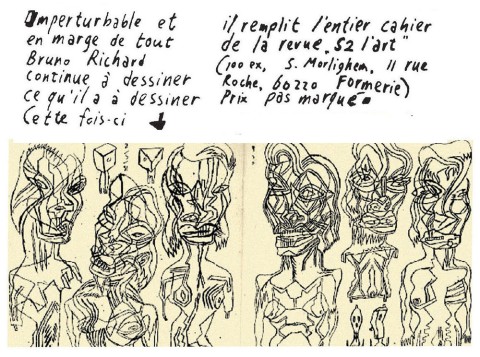 Imperturbable et
en marge de tout
Bruno Richard
continue à dessiner
ce qu'il a à dessiner
Cette fois-ci
il remplit l'entier cahier
de la revue "S2 l'art"
(100 ex, S. Morlighem, 11 rue
Roche, 60220 Formerie)
Prix pas marqué